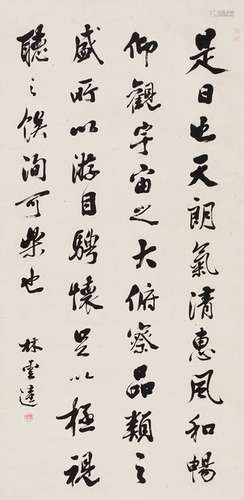 是日也天朗氣清惠風和暢
仰觀宇宙之大俯察品類之
盛所以游目騁懷足以極視
聽之娛洵可樂也
林雲逵